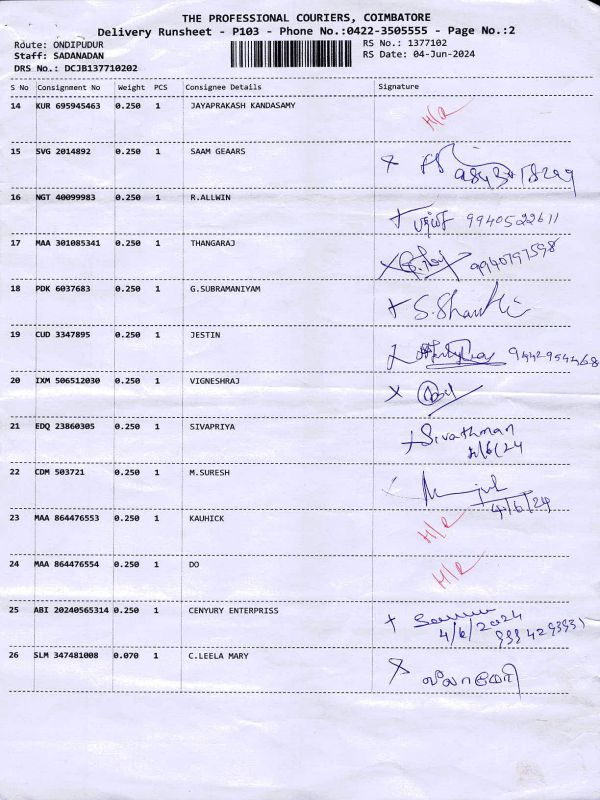 THE PROFESSIONAL COURIERS, COIMBATORE
Delivery Runsheet - P103 - Phone No.:0422-3505555 - Page No.:2
Route: ONDIPUDUR
RS No.: 1377102
Staff: SADANADAN
RS Date: 04-Jun-2024
DRS No.: DCJB137710202
S No Consignment No Weight PCS Consignee Details Signature
14 KUR 695945463 0.250 1 JAYAPRAKASH KANDASAMY
H/R
15 SVG 2014892 0.250 1 SAAM GEAARS
16 NGT 40099983 0.250 1 R.ALLWIN
9940522611
17 MAA 301085341 0.250 1 THANGARAJ
9940797598
18 PDK 6037683 0.250 1 G.SUBRAMANIYAM
19 CUD 3347895 0.250 1 JESTIN
9442954468
20 IXM 506512030 0.250 1 VIGNESHRAJ
21 EDQ 23860305 0.250 1 SIVAPRIYA
Sivathman
4/6/24
22 CDM 503721 0.250 1 M.SURESH
4/6/24
23 MAA 864476553 0.250 1 KAUHICK
H/R
24 MAA 864476554 0.250 1 DO
H/R
25 ABI 20240565314 0.250 1 CENYURY ENTERPRISS
4/6/2024
26 SLM 347481008 0.070 1 C.LEELA MARY
லீலாமேரி